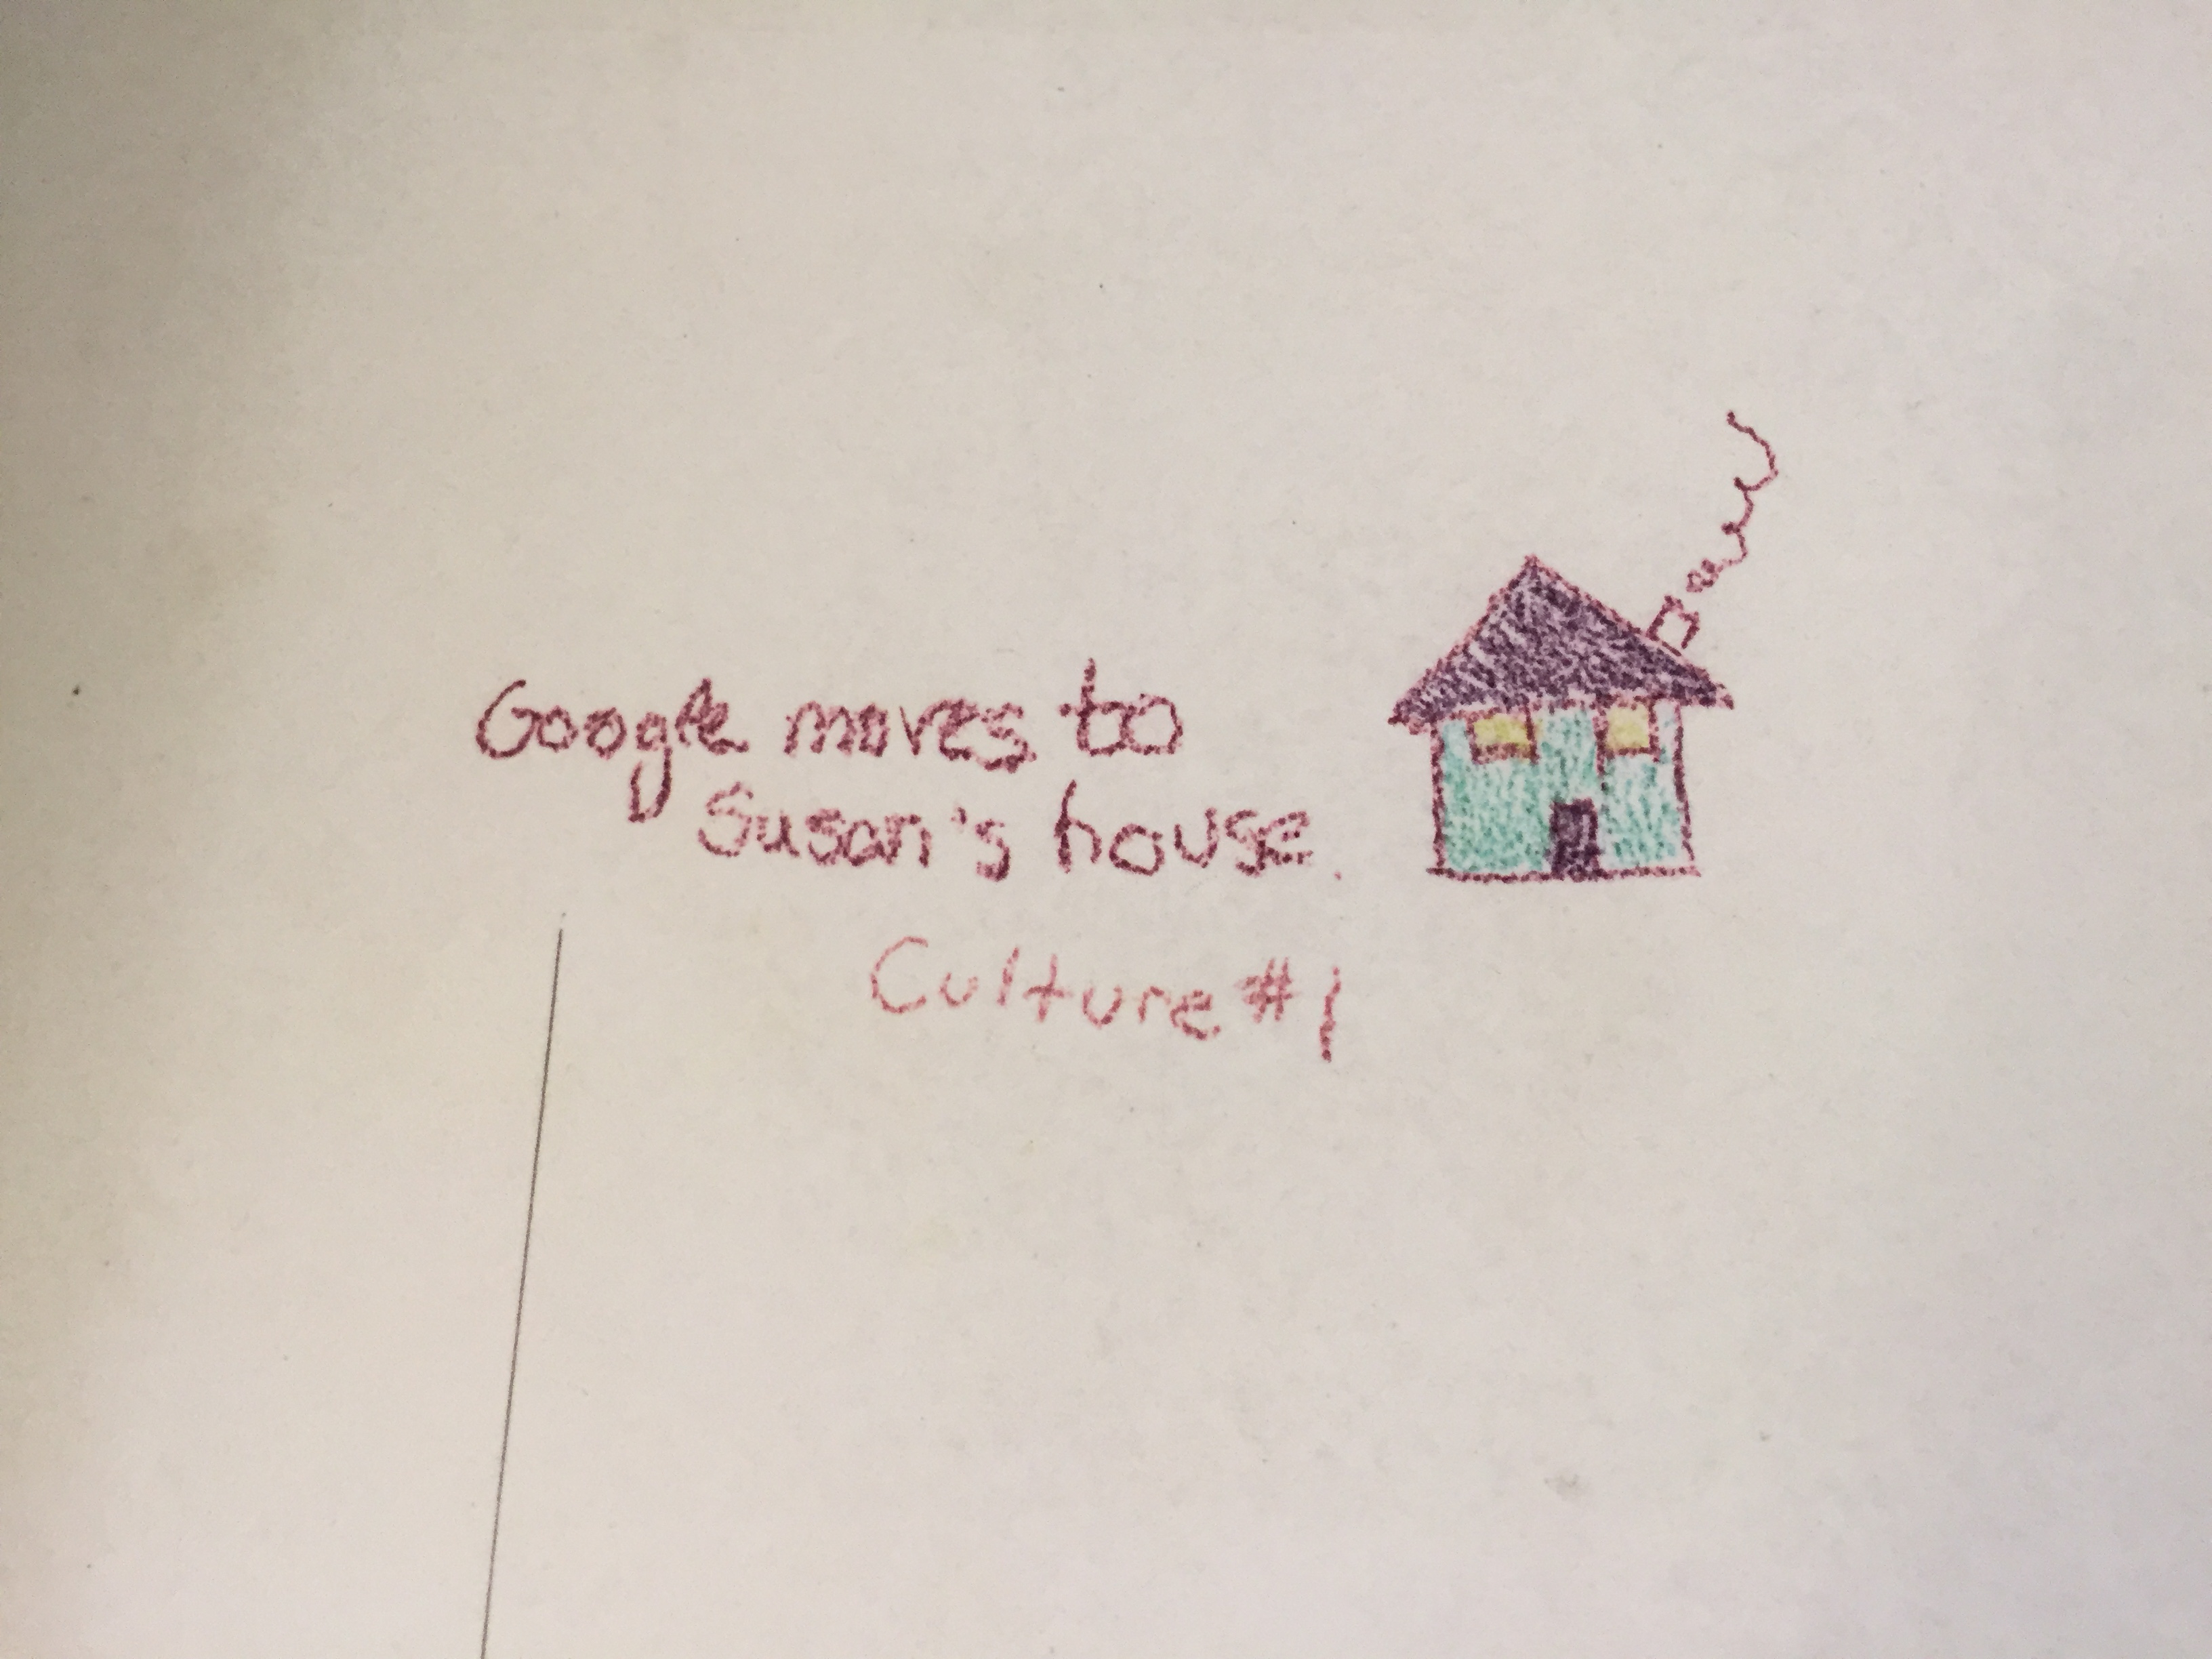 Google moves to
Susan's house.
Culture #1